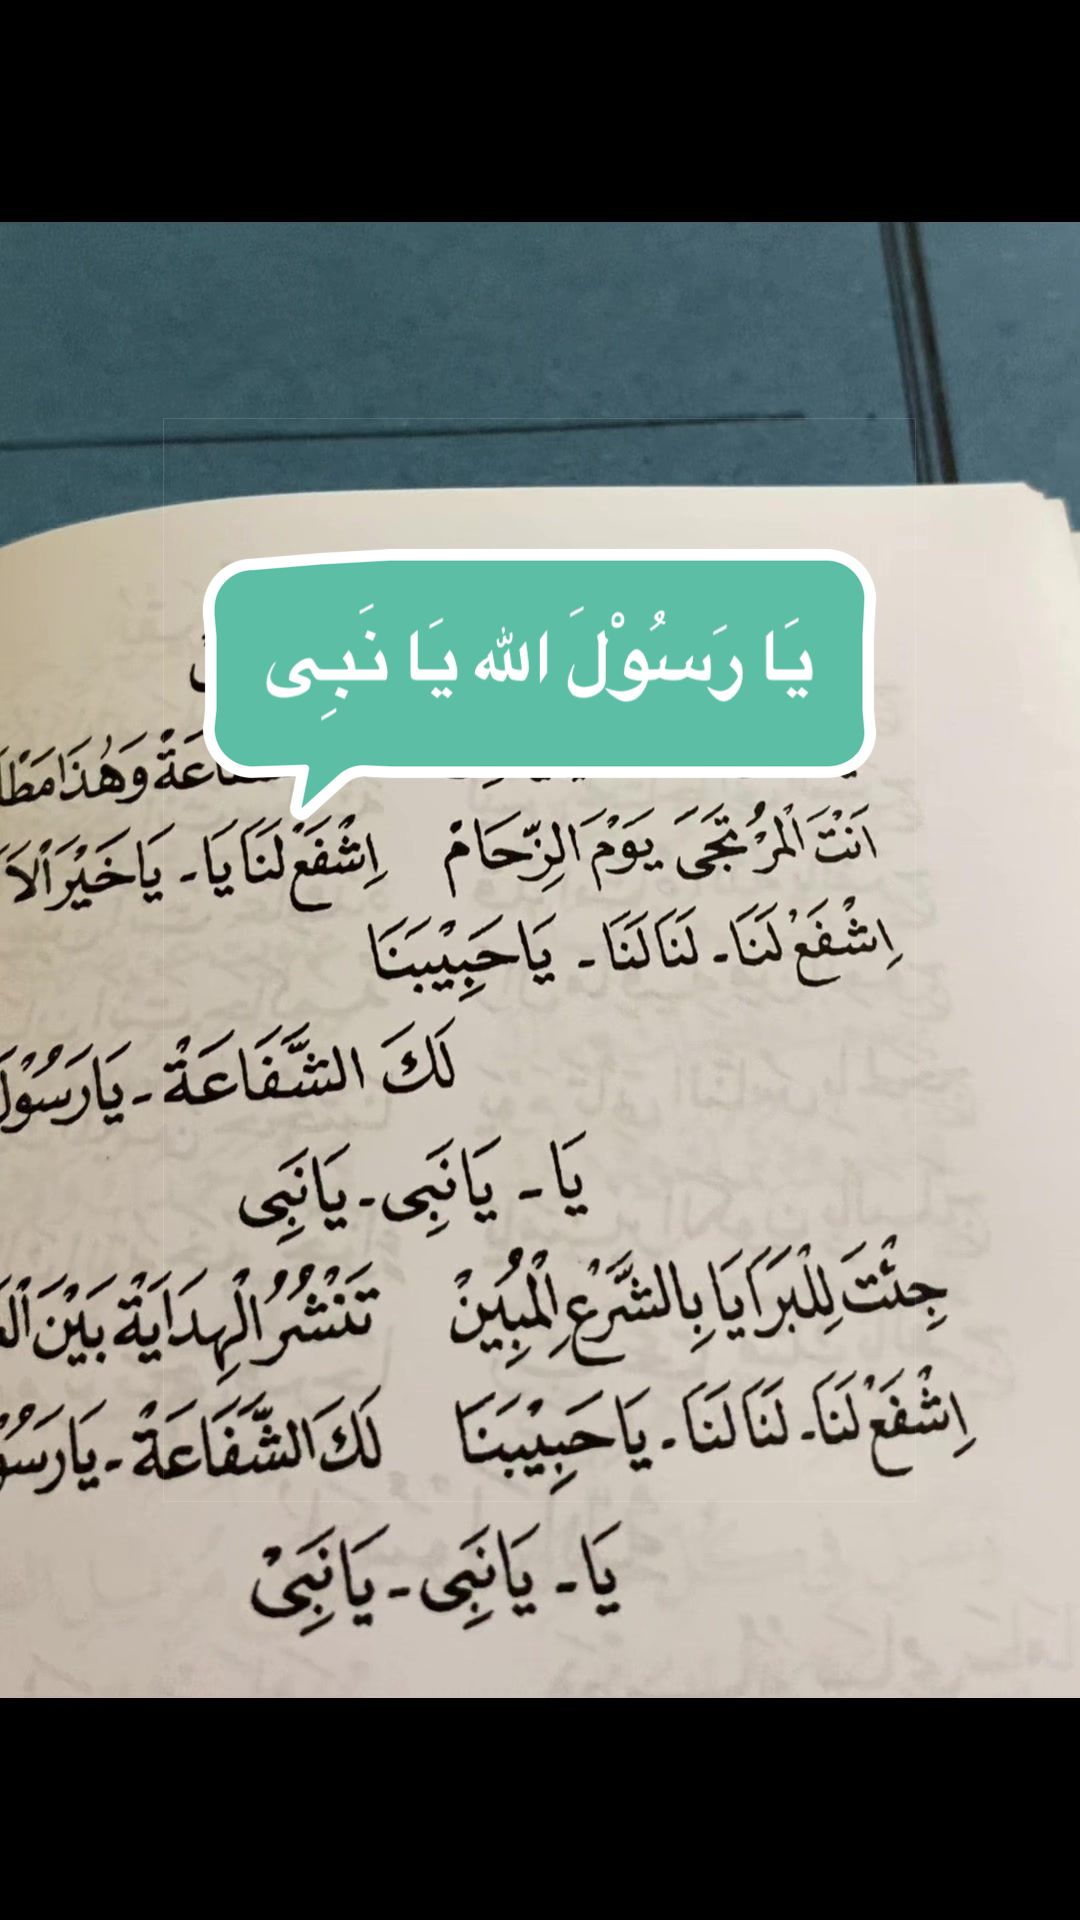 يَا رَسُوْلَ الله يَا نَبِى
وَهٰذَا
اَنْتَ الْمُرْتَجَى يَوْمَ الزِّحَامْ اِشْفَعْ لَنَا يَا - يَا خَيْرَ
اِشْفَعْ لَنَا - لَنَا لَنَا - يَا حَبِيْبَنَا
لَكَ الشَّفَاعَةْ - يَا رَسُوْلَ
يَا - يَا نَبِى - يَا نَبِى
جِئْتَ لِلْبَرَايَا بِالشَّرْعِ الْمُبِيْنْ تَنْشُرُ الْهِدَايَةْ بَيْنَ
اِشْفَعْ لَنَا - لَنَا لَنَا - يَا حَبِيْبَنَا لَكَ الشَّفَاعَةْ - يَا
يَا - يَا نَبِى - يَا نَبِىْ